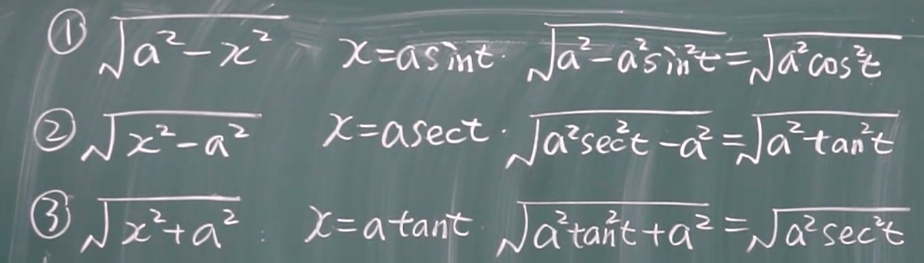 ① √(a²-x²) x=asint. √(a²-a²sin²t)=√(a²cos²t)
② √(x²-a²) x=asect. √(a²sec²t-a²)=√(a²tan²t)
③ √(x²+a²). x=atant √(a²tan²t+a²)=√(a²sec²t)